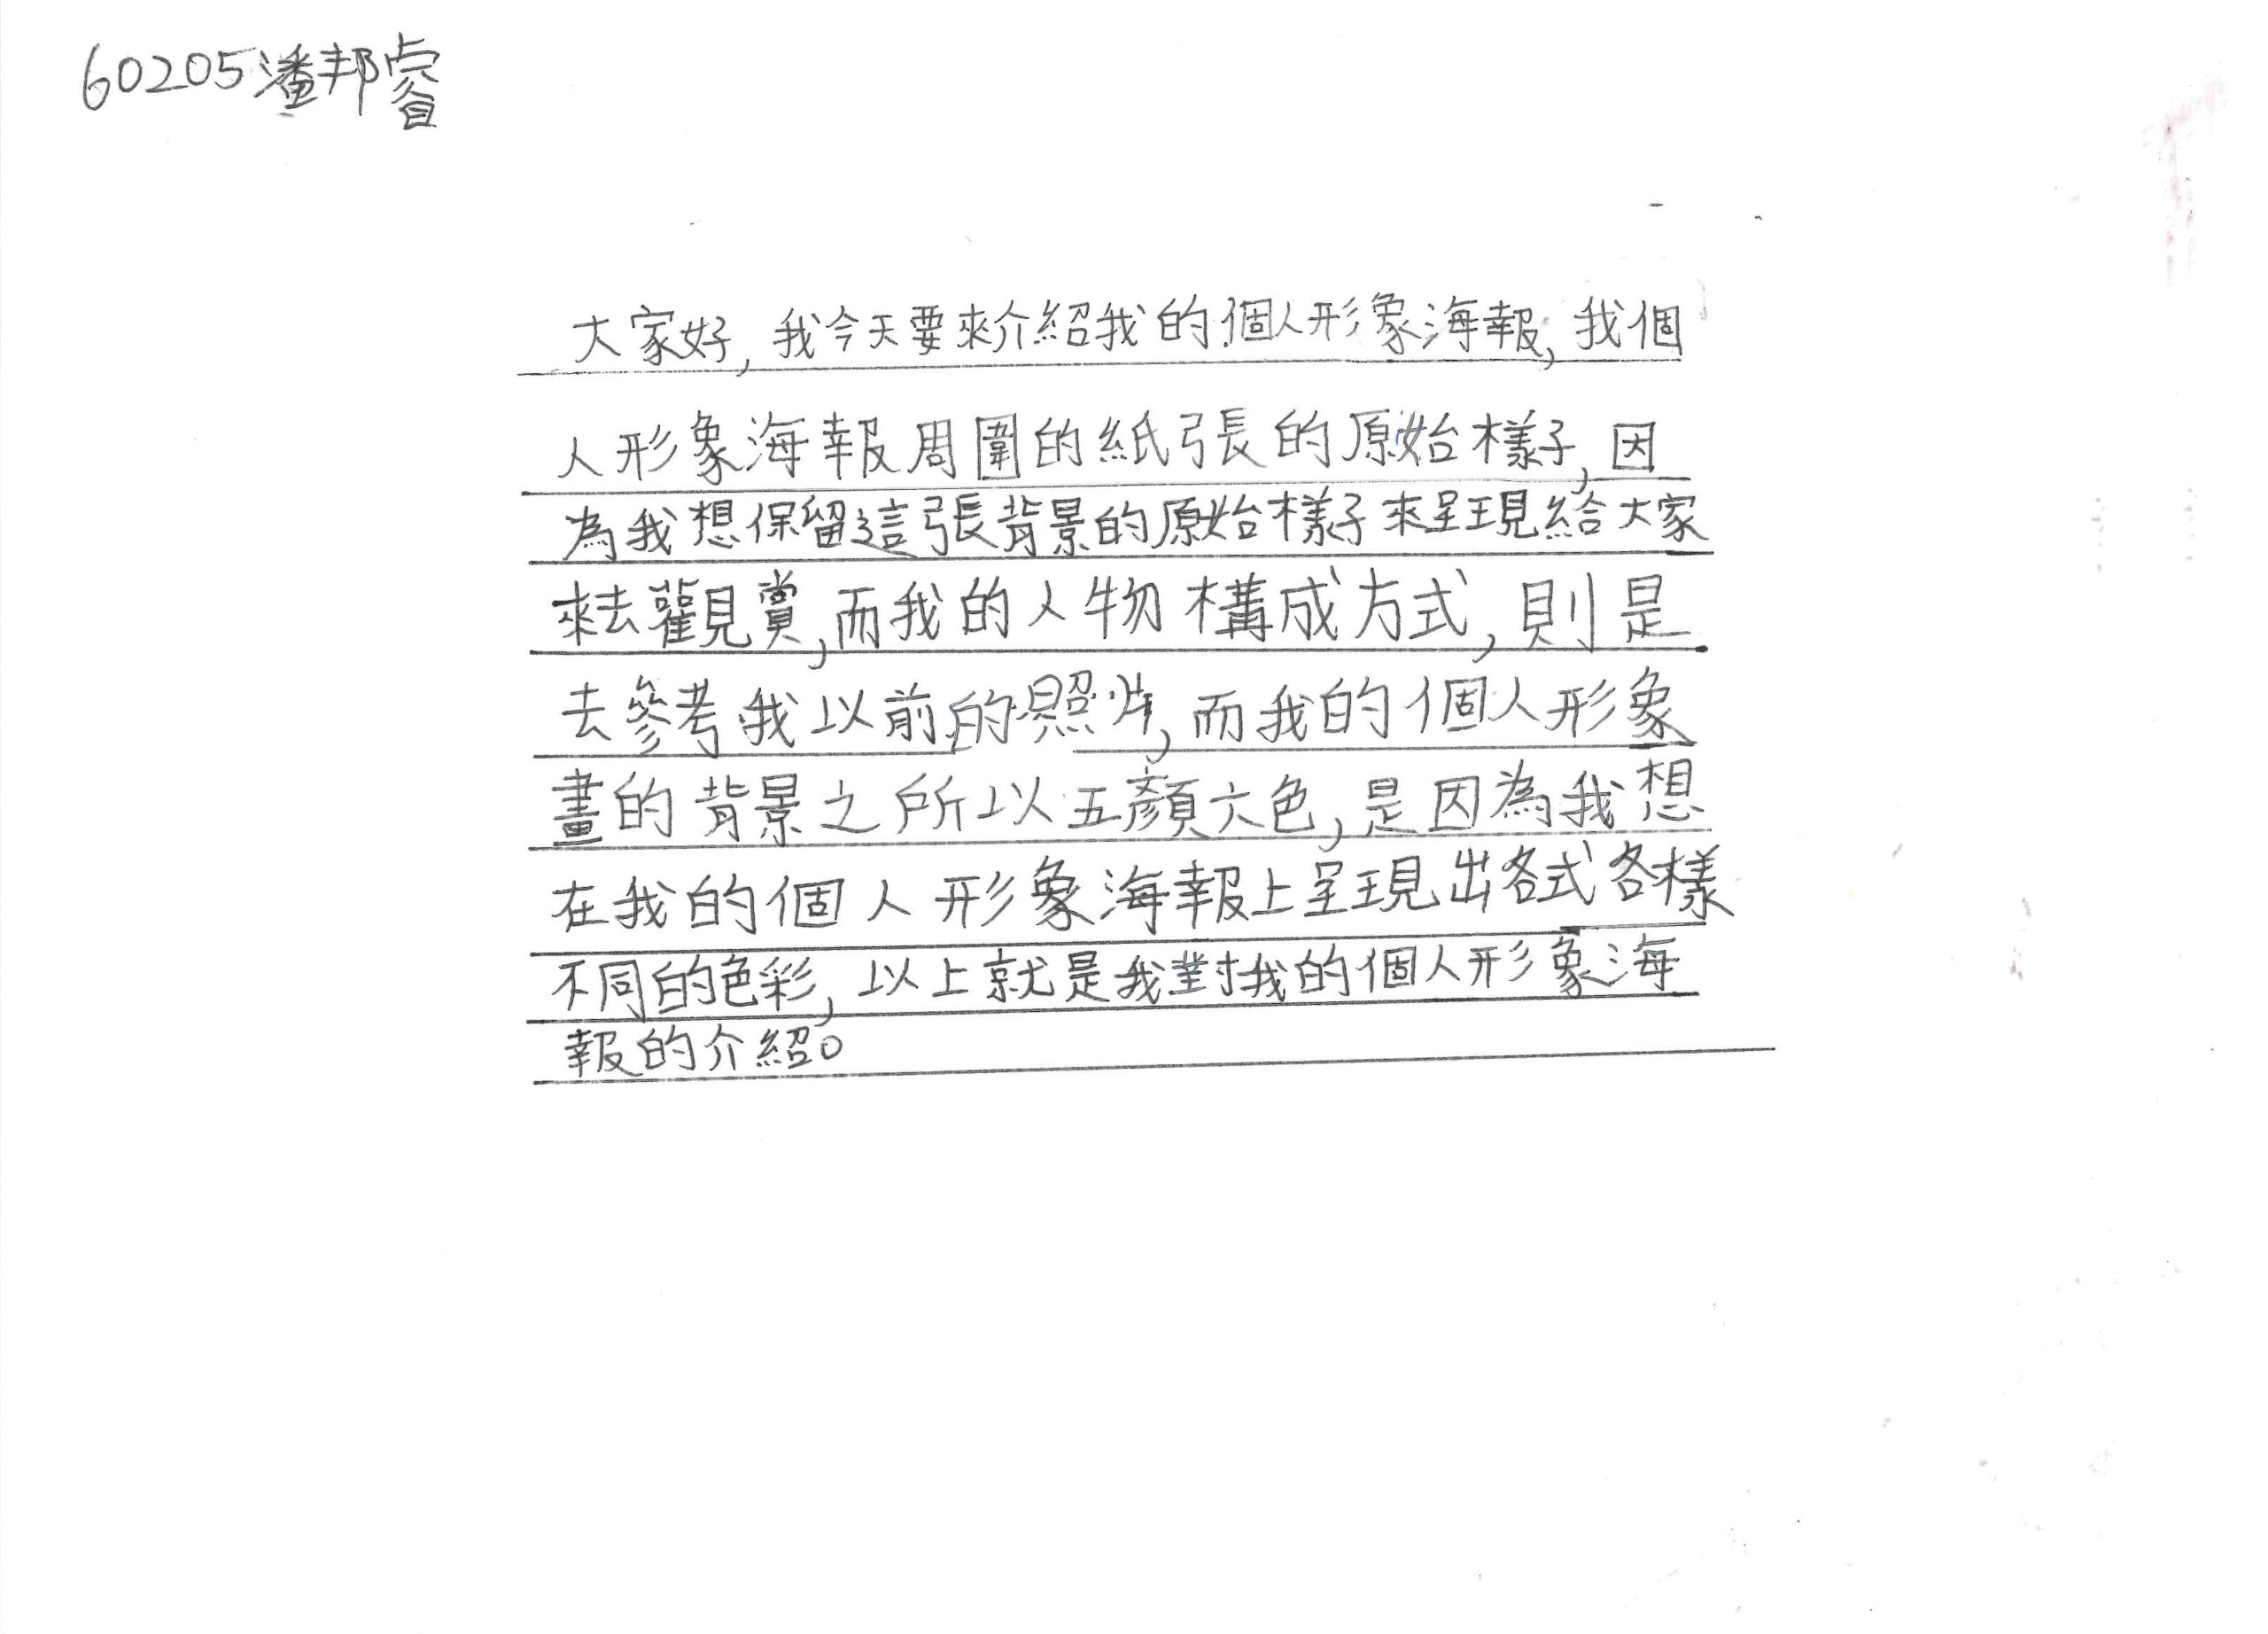 60205潘邦睿
大家好,我今天要來介紹我的個人形象海報,我個
人形象海報周圍的紙張的原始樣子,因
為我想保留這張背景的原始樣子來呈現給大家
來去觀賞,而我的人物構成方式,則是
去參考我以前的照片,而我的個人形象
畫的背景之所以五顏六色,是因為我想
在我的個人形象海報上呈現出各式各樣
不同的色彩,以上就是我對我的個人形象海
報的介紹。